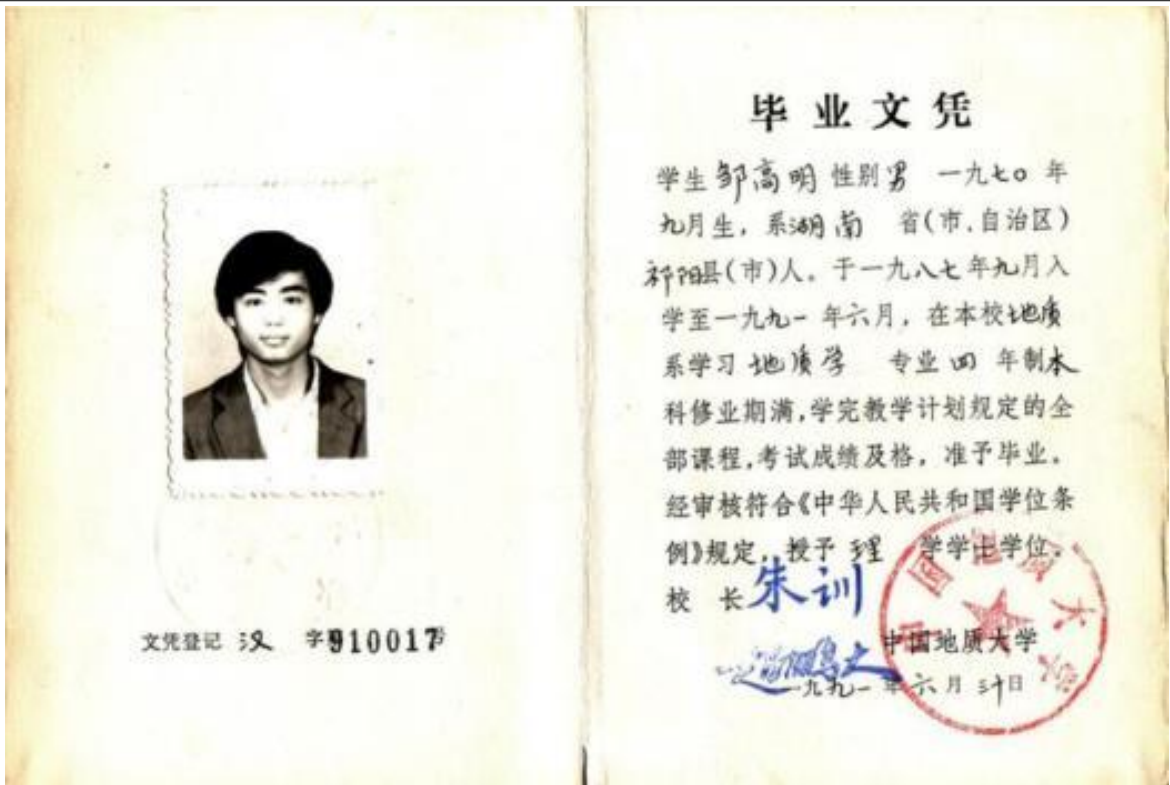 文凭登记 汉 字第910017号
毕业文凭
学生邹高明性别男 一九七〇年
九月生，系湖南 省(市.自治区)
祁阳县(市)人。于一九八七年九月入
学至一九九一年六月，在本校地质
系学习地质学 专业四年制本
科修业期满,学完教学计划规定的全
部课程,考试成绩及格，准予毕业。
经审核符合《中华人民共和国学位条
例》规定，授予理 学学士学位。
校 长朱训
赵鹏大
中国地质大学
一九九一年六月三十日
中国地质大学